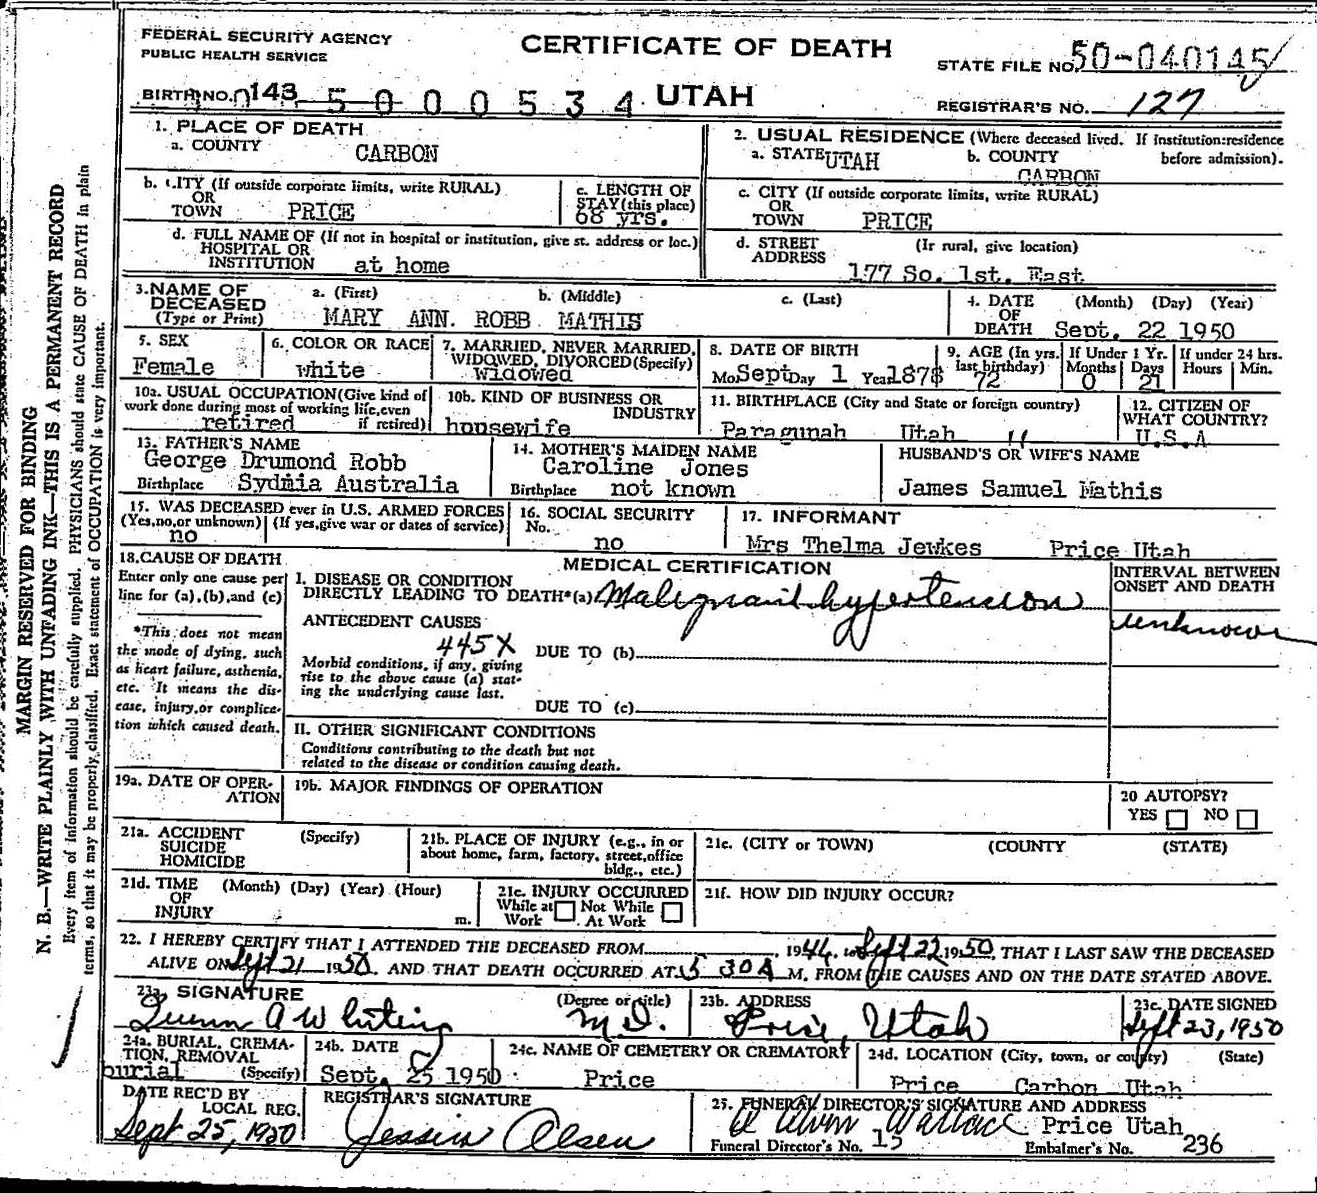 FEDERAL SECURITY AGENCY
PUBLIC HEALTH SERVICE
CERTIFICATE OF DEATH
STATE FILE NO. 50-040145
BIRTH NO. 143 5000534 UTAH
REGISTRAR'S NO. 127
1. PLACE OF DEATH
a. COUNTY CARBON
2. USUAL RESIDENCE (Where deceased lived. If institution:residence before admission).
a. STATE UTAH b. COUNTY CARBON
b. CITY (If outside corporate limits, write RURAL)
OR
TOWN PRICE
c. LENGTH OF
STAY (this place)
68 yrs.
c. CITY (If outside corporate limits, write RURAL)
OR
TOWN PRICE
d. FULL NAME OF (If not in hospital or institution, give st. address or loc.)
HOSPITAL OR
INSTITUTION at home
d. STREET (Ir rural, give location)
ADDRESS 177 So. 1st. East
3. NAME OF DECEASED
(Type or Print)
a. (First) b. (Middle) c. (Last)
MARY ANN. ROBB MATHIS
4. DATE OF DEATH (Month) (Day) (Year)
Sept. 22 1950
5. SEX
Female
6. COLOR OR RACE
white
7. MARRIED, NEVER MARRIED,
WIDOWED, DIVORCED (Specify)
widowed
8. DATE OF BIRTH
Mo. Sept Day 1 Year 1878
9. AGE (In yrs. last birthday)
72
If Under 1 Yr.
Months Days
0 21
If under 24 hrs.
Hours Min.
10a. USUAL OCCUPATION (Give kind of
work done during most of working life, even
if retired)
retired
10b. KIND OF BUSINESS OR
INDUSTRY
housewife
11. BIRTHPLACE (City and State or foreign country)
Paragunah Utah "
12. CITIZEN OF
WHAT COUNTRY?
U.S.A
13. FATHER'S NAME
George Drumond Robb
Birthplace Sydnia Australia
14. MOTHER'S MAIDEN NAME
Caroline Jones
Birthplace not known
HUSBAND'S OR WIFE'S NAME
James Samuel Mathis
15. WAS DECEASED ever in U.S. ARMED FORCES
(Yes, no, or unknown) (If yes, give war or dates of service)
no
16. SOCIAL SECURITY
No.
no
17. INFORMANT
Mrs Thelma Jewkes Price Utah
18. CAUSE OF DEATH
Enter only one cause per
line for (a), (b), and (c)
*This does not mean
the mode of dying, such
as heart failure, asthenia,
etc. It means the dis-
ease, injury, or complica-
tion which caused death.
MEDICAL CERTIFICATION
I. DISEASE OR CONDITION
DIRECTLY LEADING TO DEATH*(a) Malignant hypertension
ANTECEDENT CAUSES
445X DUE TO (b)
Morbid conditions, if any, giving
rise to the above cause (a) stat-
ing the underlying cause last.
DUE TO (c)
INTERVAL BETWEEN
ONSET AND DEATH
unknown
II. OTHER SIGNIFICANT CONDITIONS
Conditions contributing to the death but not
related to the disease or condition causing death.
19a. DATE OF OPER-
ATION
19b. MAJOR FINDINGS OF OPERATION
20 AUTOPSY?
YES NO
21a. ACCIDENT (Specify)
SUICIDE
HOMICIDE
21b. PLACE OF INJURY (e.g., in or
about home, farm, factory, street, office
bldg., etc.)
21c. (CITY or TOWN) (COUNTY) (STATE)
21d. TIME (Month) (Day) (Year) (Hour)
OF
INJURY m.
21e. INJURY OCCURRED
While at Not While
Work At Work
21f. HOW DID INJURY OCCUR?
22. I HEREBY CERTIFY THAT I ATTENDED THE DECEASED FROM , 1946, to Sept 22 1950, THAT I LAST SAW THE DECEASED
ALIVE ON Sept 21 1950. AND THAT DEATH OCCURRED AT 5 30A M. FROM THE CAUSES AND ON THE DATE STATED ABOVE.
23a. SIGNATURE (Degree or title)
Quinn A Whiting M.D.
23b. ADDRESS
Price, Utah
23c. DATE SIGNED
Sept 23, 1950
24a. BURIAL, CREMA-
TION, REMOVAL
(Specify)
burial
24b. DATE
Sept. 25 1950
24c. NAME OF CEMETERY OR CREMATORY
Price
24d. LOCATION (City, town, or county) (State)
Price Carbon Utah
DATE REC'D BY
LOCAL REG.
Sept 25, 1950
REGISTRAR'S SIGNATURE
Jessie Olsen
25. FUNERAL DIRECTOR'S SIGNATURE AND ADDRESS
Wallace Price Utah
Funeral Director's No. 15 Embalmer's No. 236
MARGIN RESERVED FOR BINDING
N. B.—WRITE PLAINLY WITH UNFADING INK—THIS IS A PERMANENT RECORD
Every item of information should be carefully supplied. PHYSICIANS should state CAUSE OF DEATH in plain
terms, so that it may be properly classified. Exact statement of OCCUPATION is very important.